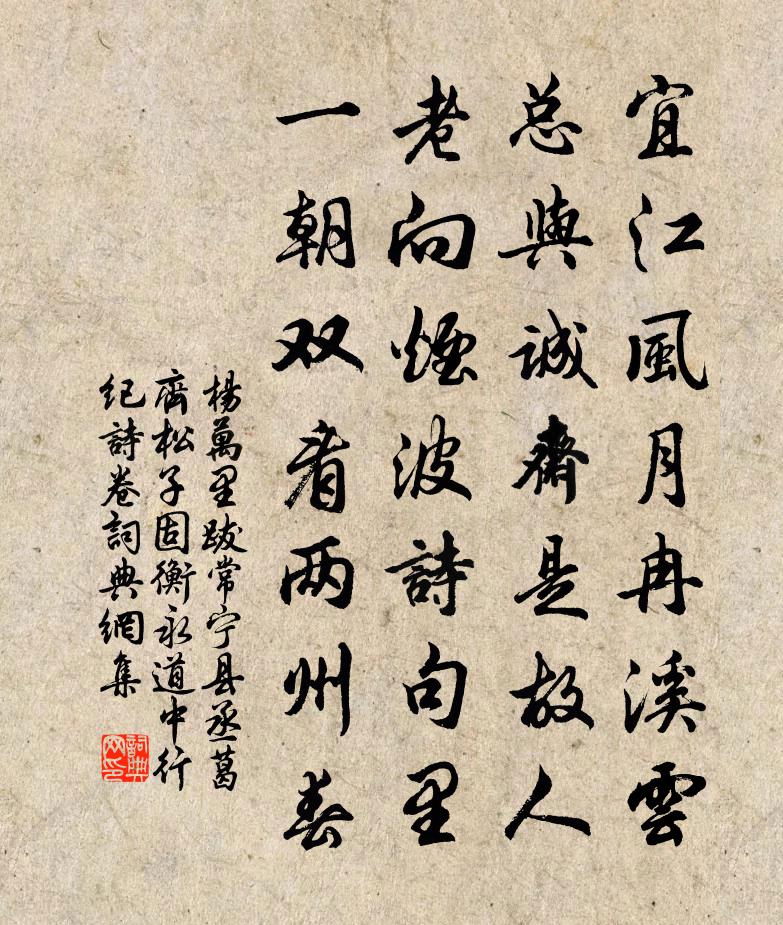 宜江風月冉溪雲
总與誠齋是故人
老向煙波詩句里
一朝双看两州春
楊萬里跋常宁县丞葛
齊松子固衡永道中行
纪詩卷詞典網集
詞典网印